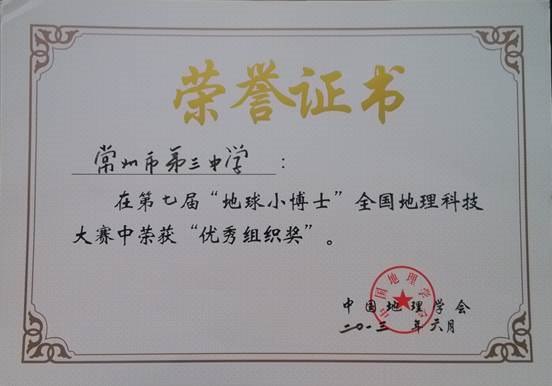 荣誉证书
常州市第三中学：
在第七届“地球小博士”全国地理科技
大赛中荣获“优秀组织奖”。
中国地理学会
中国地理学会
二〇一三年六月